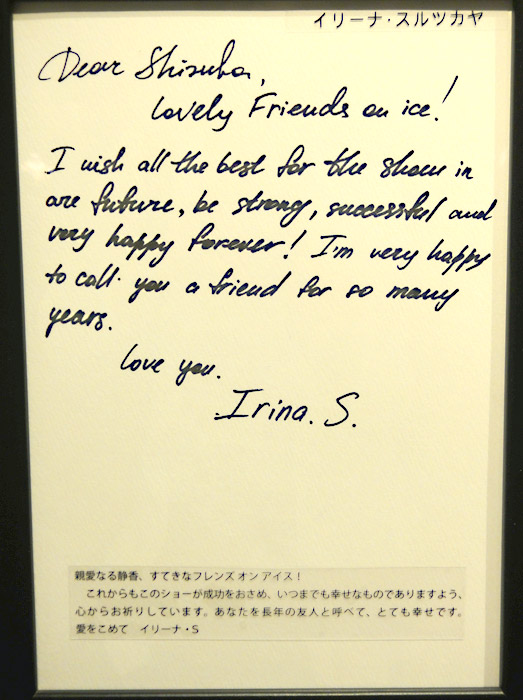 イリーナ・スルツカヤ
Dear Shizuka,
lovely Friends on ice!
I wish all the best for the show in
are future, be strong, successful and
very happy forever! I'm very happy
to call you a friend for so many
years.
love you.
Irina. S.
親愛なる静香、すてきなフレンズ オン アイス！
これからもこのショーが成功をおさめ、いつまでも幸せなものでありますよう、
心からお祈りしています。あなたを長年の友人と呼べて、とても幸せです。
愛をこめて　イリーナ・S